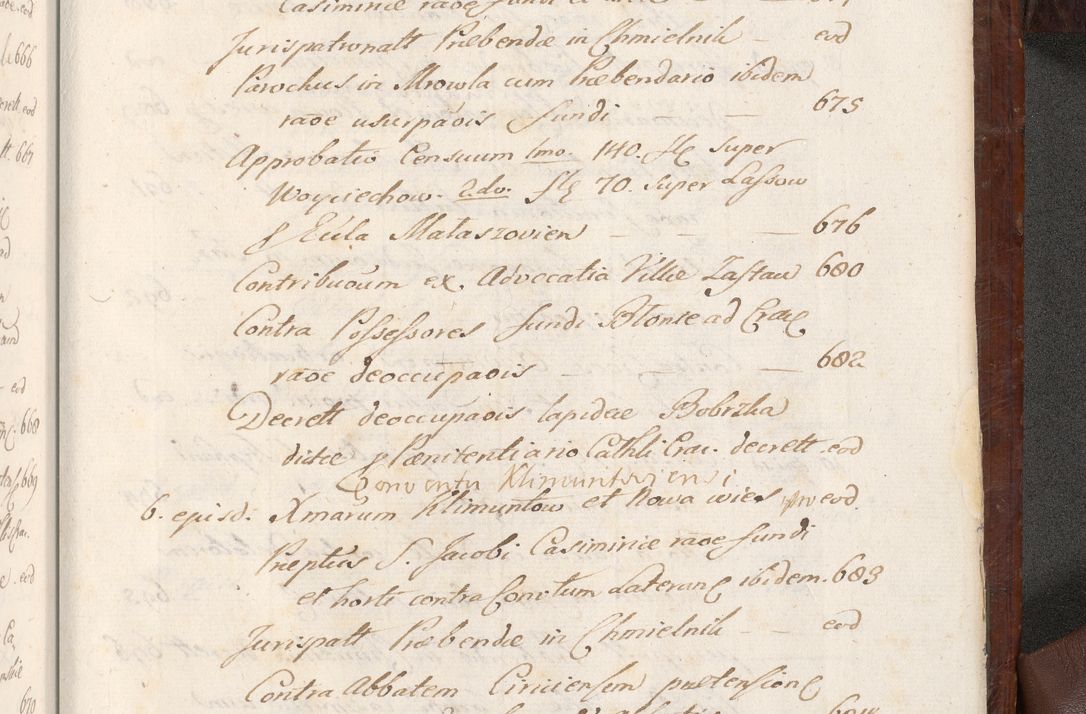 Casimiriæ raoe fundi
Jurispatronatt Præbendæ in Chmielnik — eod
Parochus in Mrowla cum Præbendario ibidem
raoe usurpaois fundi — 675
Approbatio Censuum 1mo. 140. fl super
Woyciechow. 2do. fl 70. super Lassow
p Eccla Mataszovien — — — 676
Contribuoum ex. Advocatia Villæ Zastaw 680
Contra Possessores fundi Blonie ad Crac
raoe deoccupaois — — 682
Decrett deoccupaois lapideæ Bobrzka
dictæ p Pænitentiario Cathli Crac. decrett. eod
Conventu Klimuntoviensi
6. episd. Xmarum Klimuntow et Nowa wies pro eod.
Præptus S. Jacobi Casimiriæ raoe fundi
et horti contra Convtum Lateran ibidem. 683
Jurispatt Præbendæ in Chmielnik — — eod
Contra Abbatem Ciriciensem prætension
666
eod
667
eod
668
669
eod
670